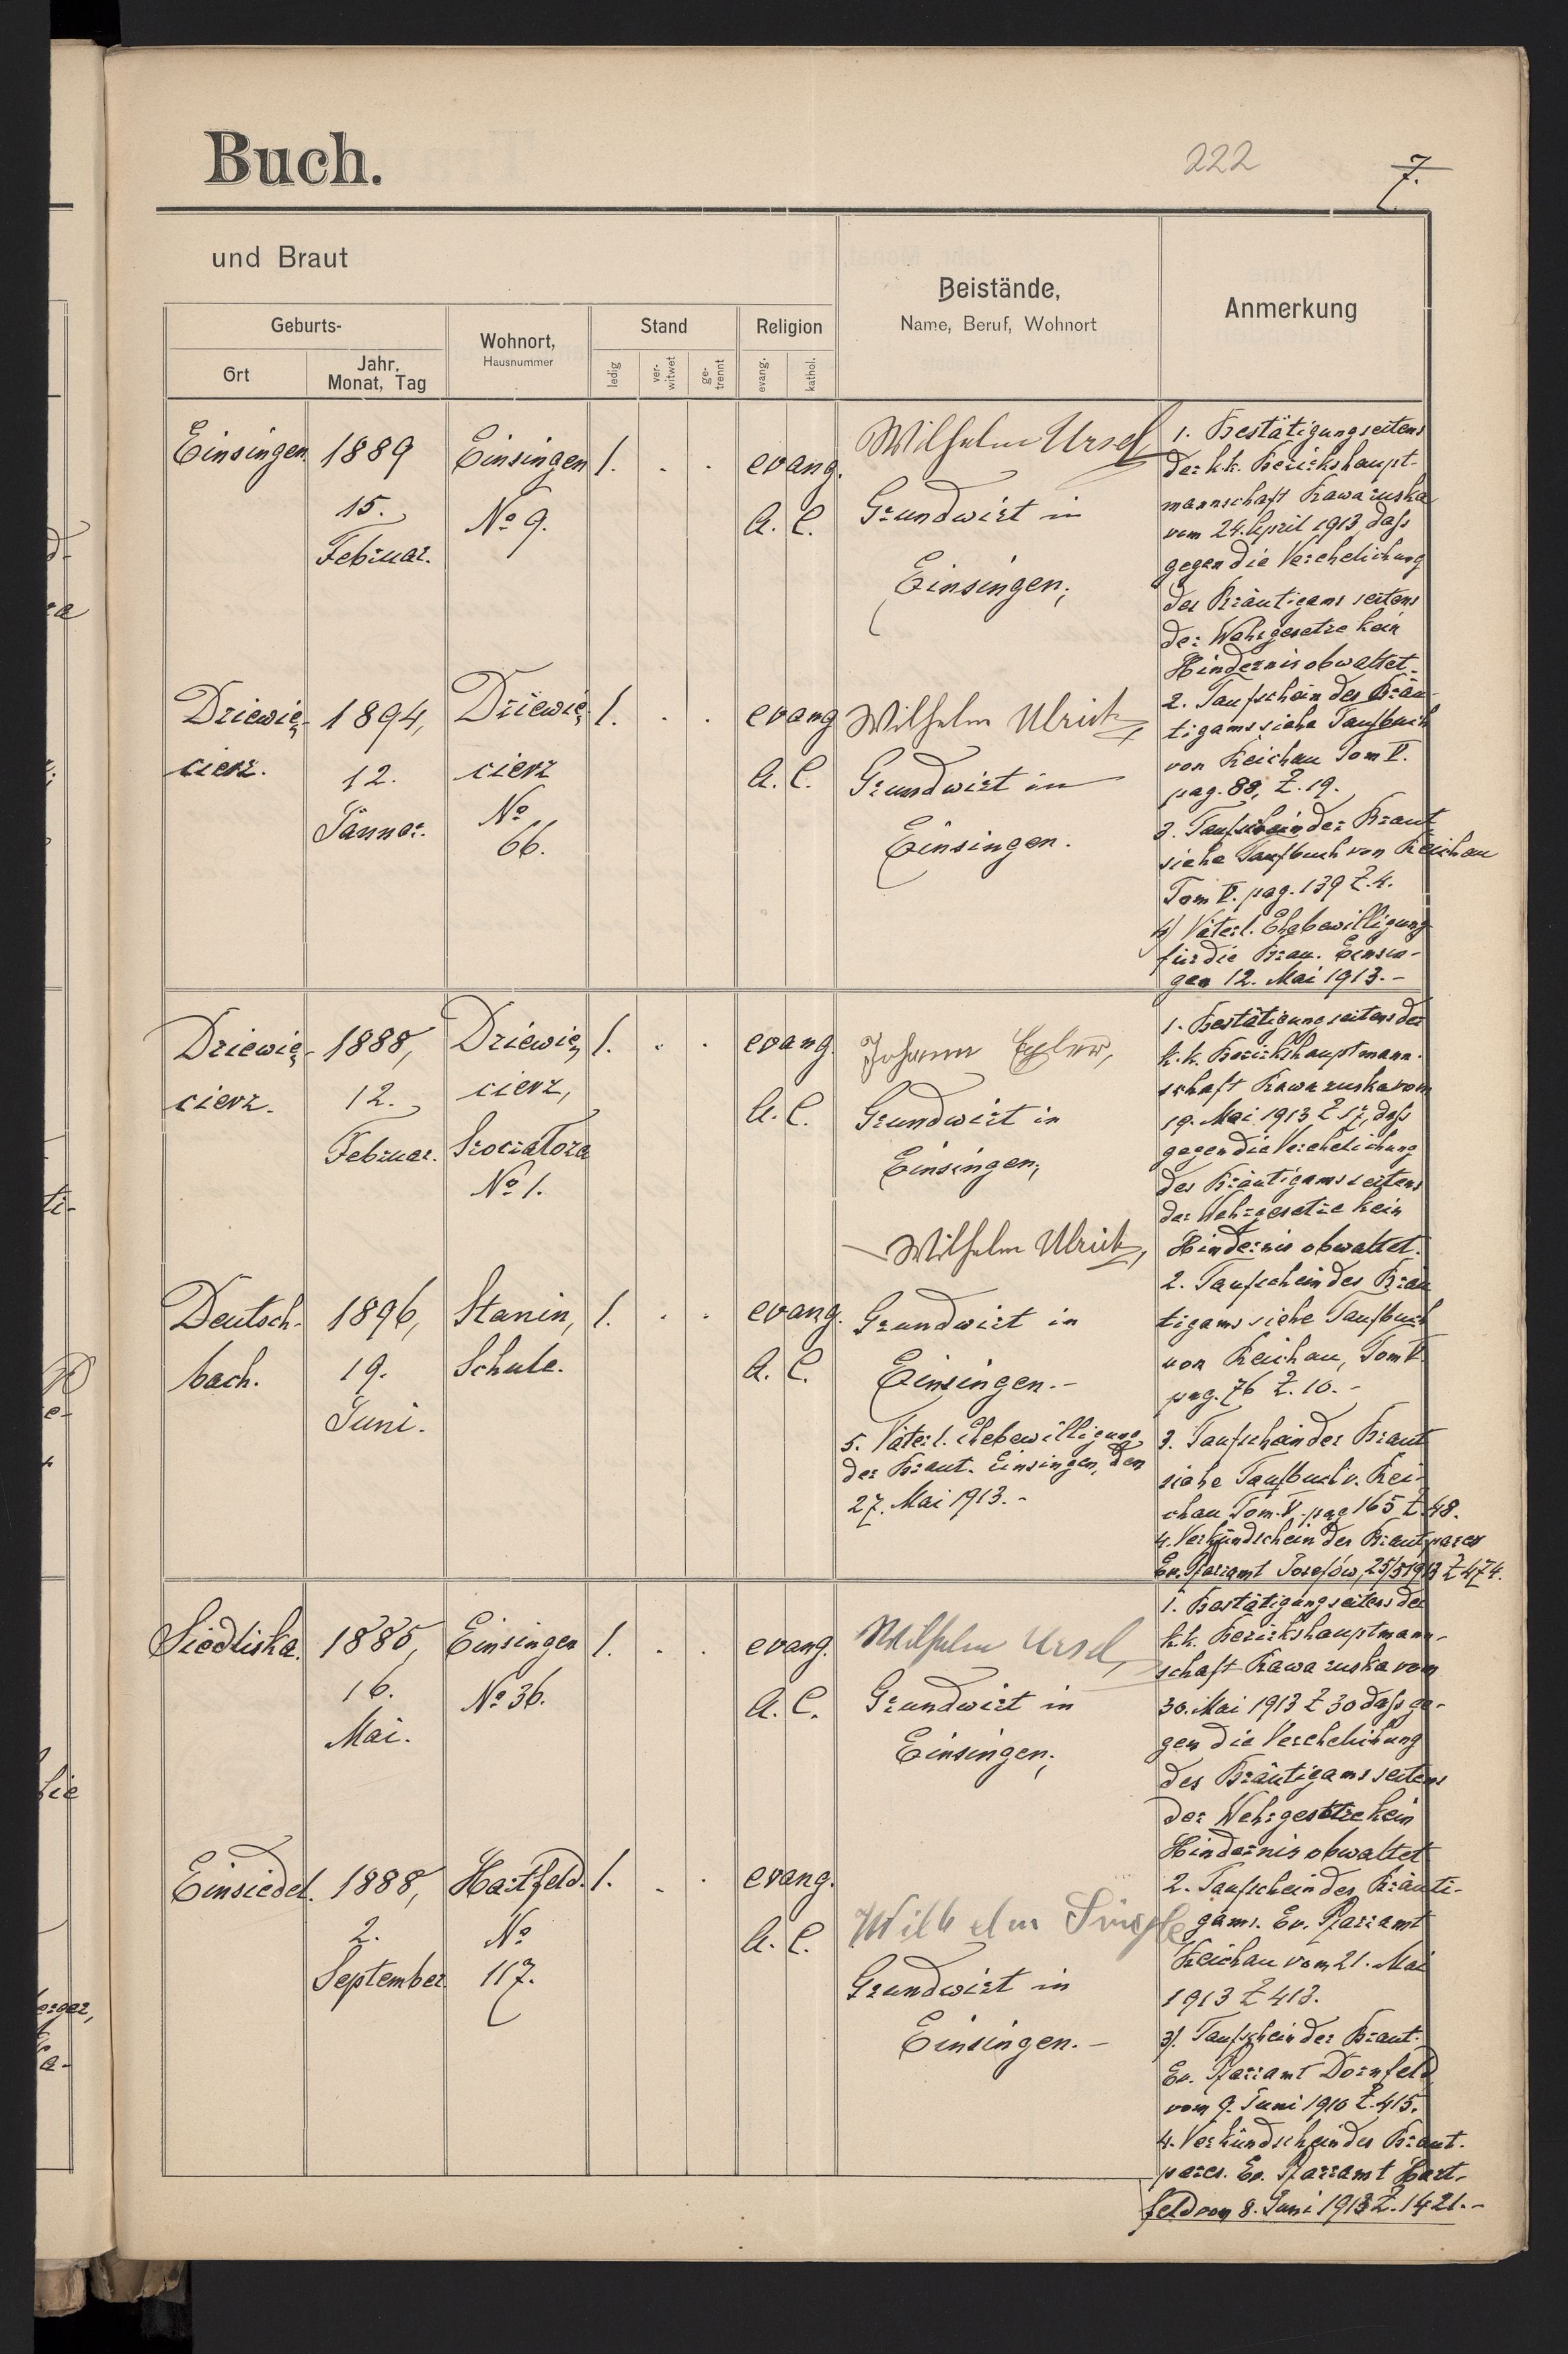 Buch.
222
7.
und Braut
Geburts-
Ort
Jahr, Monat, Tag
Wohnort,
Hausnummer
Stand
ledig
ver-
witwet
ge-
trennt
Religion
evang.
kathol.
Beistände,
Name, Beruf, Wohnort
Anmerkung
Einsingen. 1889 Einsingen 1. . . evang.
15. No 9. A. C.
Februar.
Wilhelm Ursel,
Grundwirt in
Einsingen;
Dziewię- 1894, Dziewię- 1. . . evang
cierz. 12. cierz A. C.
Jänner. No
66.
Wilhelm Ulrich,
Grundwirt in
Einsingen.
1. Bestätigung seitens
der k.k. Bezirkshaupt-
mannschaft Rawa ruska
vom 24. April 1913, daß
gegen die Verehelichung
des Bräutigams seitens
der Wehrgesetze kein
Hindernis obwaltet.
2. Taufschein des Bräu-
tigams siehe Taufbuch
von Reichau Tom V.
pag. 88, Z. 19.
3. Taufschein der Braut
siehe Taufbuch von Reichau
Tom V. pag. 139 Z. 4.
4) Väterl. Ehebewilligung
für die Brau. Einsin-
gen 12. Mai 1913. –
Dziewię- 1888, Dziewię 1. . . evang.
cierz. 12. cierz, A. C.
Februar.
No 1.
Johann
Grundwirt in
Einsingen;
Wilhelm Ulrich,
Deutsch- 1896, Stanin, 1. . . evang.
bach. 19. Schule. A. C.
Juni.
Grundwirt in
Einsingen. –
5. Väterl. Ehebewilligung
der Braut. Einsingen, den
27. Mai 1913. –
1. Bestätigung seitens der
k.k. Bezirkshauptmann-
schaft Rawa ruska vom
19. Mai 1913 Z 17, daß
gegen die Verehelichung
des Bräutigams seitens
der Wehrgesetze kein
Hindernis obwaltet.
2. Taufschein des Bräu
tigams siehe Taufbuch
von Reichau, Tom V.
pag. 76 Z. 10. –
3. Taufschein der Braut
siehe Taufbuch v. Rei-
chau Tom. V. pag 165 Z 48.
4. Verkündschein des Brautpares
Ev. Pfarramt Josefów, 25/5 1913 Z 474.
Siedliska. 1885, Einsingen 1. . . evang.
16. No 36. A. C.
Mai.
Wilhelm Ursel,
Grundwirt in
Einsingen;
Einsiedel. 1888, Hartfeld. 1. . . evang.
2. No A. C.
September. 117.
Wilhelm
Grundwirt in
Einsingen. –
1. Bestätigung seitens der
k.k. Bezirkshauptmann-
schaft Rawa ruska vom
30. Mai 1913 Z 30 daß ge-
gen die Verehelichung
des Bräutigams seitens
der Wehrgesetze kein
Hindernis obwaltet
2. Taufschein des Bräuti-
gams. Ev. Pfarramt
Reichau vom 21. Mai
1913 Z 413.
3). Taufschein der Braut.
Ev. Pfarramt Dornfeld
vom 9. Juni 1910 Z. 415.
4. Verkündschein des Braut-
pares. Ev. Pfarramt Hart-
feld vom 8. Juni 1913 Z. 1421. –